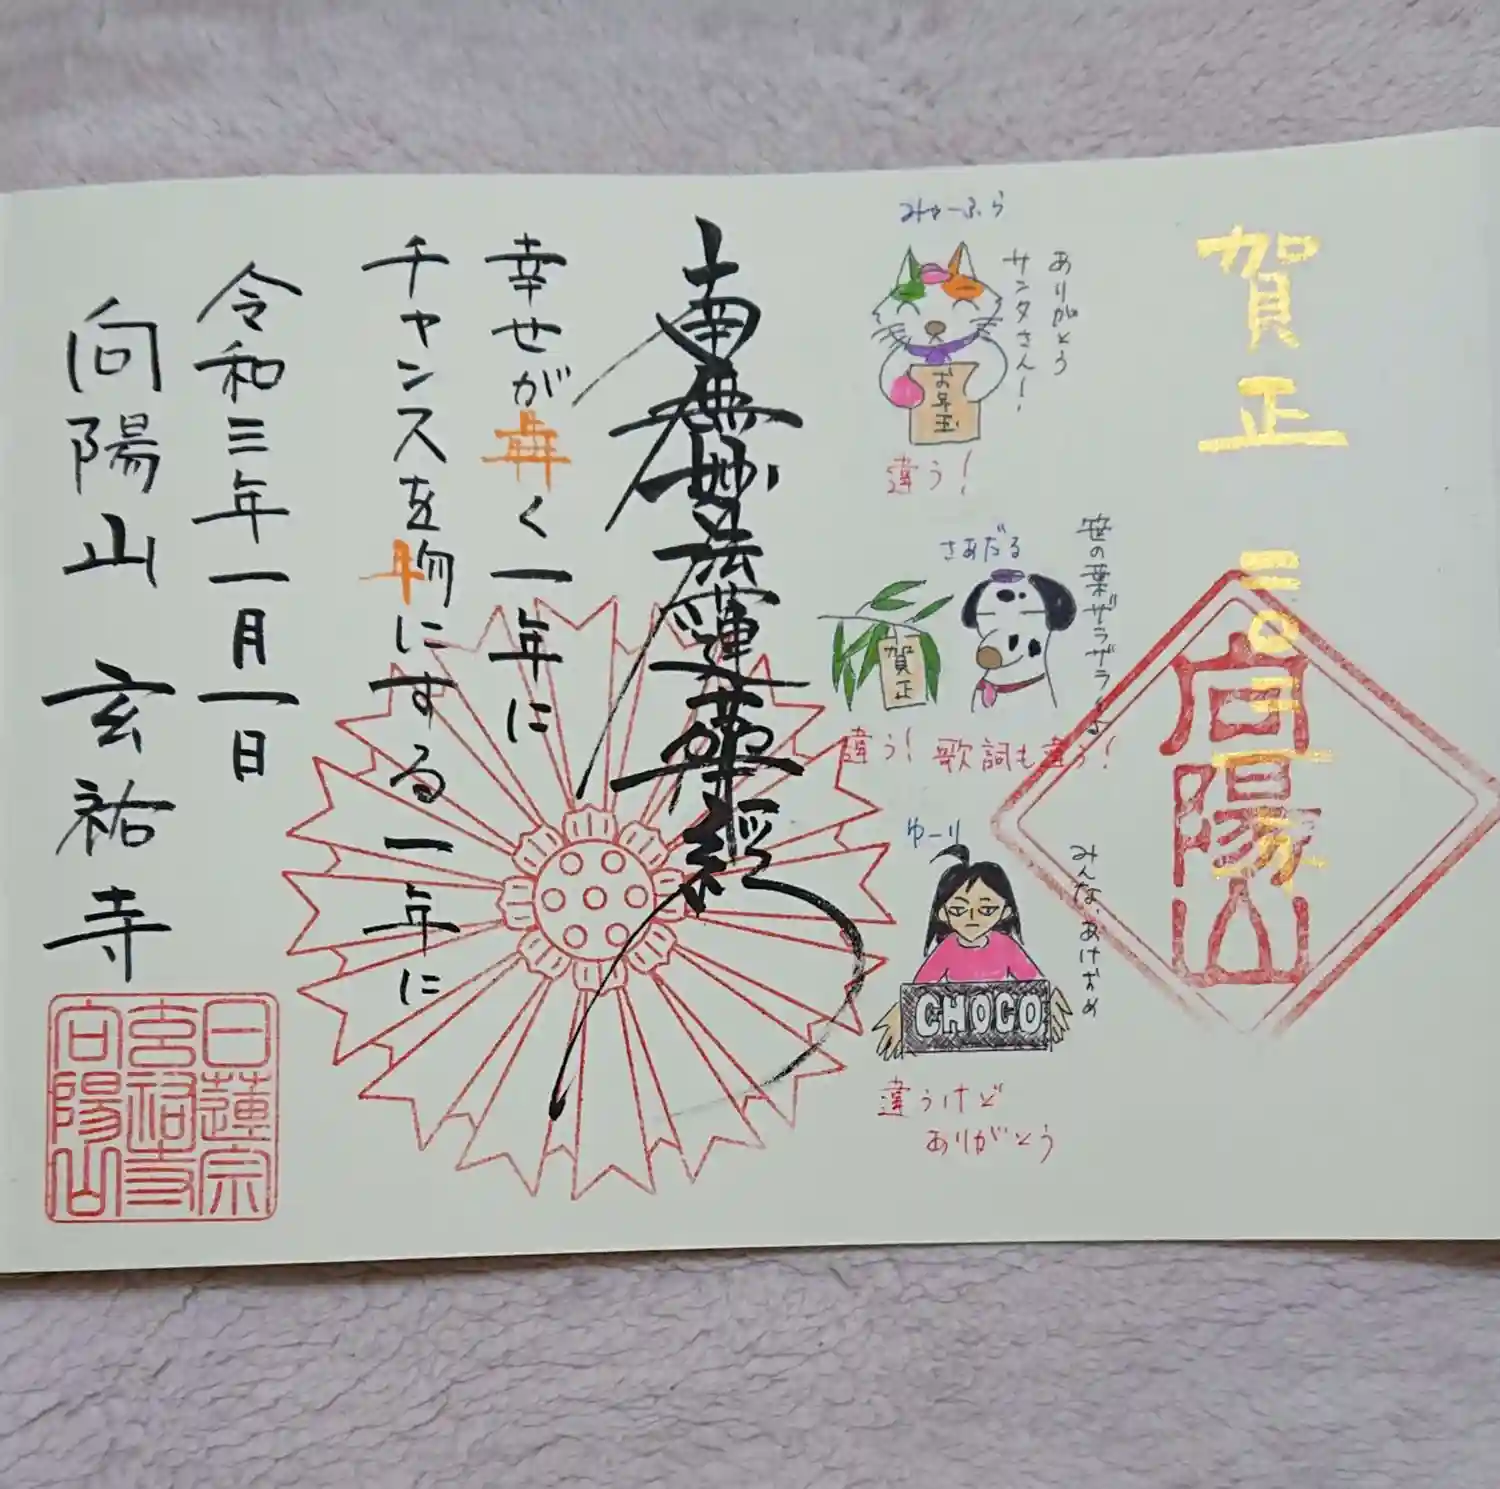 賀正 二〇二一
向陽山
みゅーふら
ありがとう
サンタさん!
お年玉
違う!
さあだる
笹の葉ザラザラ
賀正
違う! 歌詞も違う!
ゆーり
みんな、あけおめ
CHOCO
違うけど
ありがとう
南無妙法蓮華経
幸せが犇く一年に
チャンスを物にする一年に
令和三年一月一日
向陽山 玄祐寺
日蓮宗
玄祐寺
向陽山